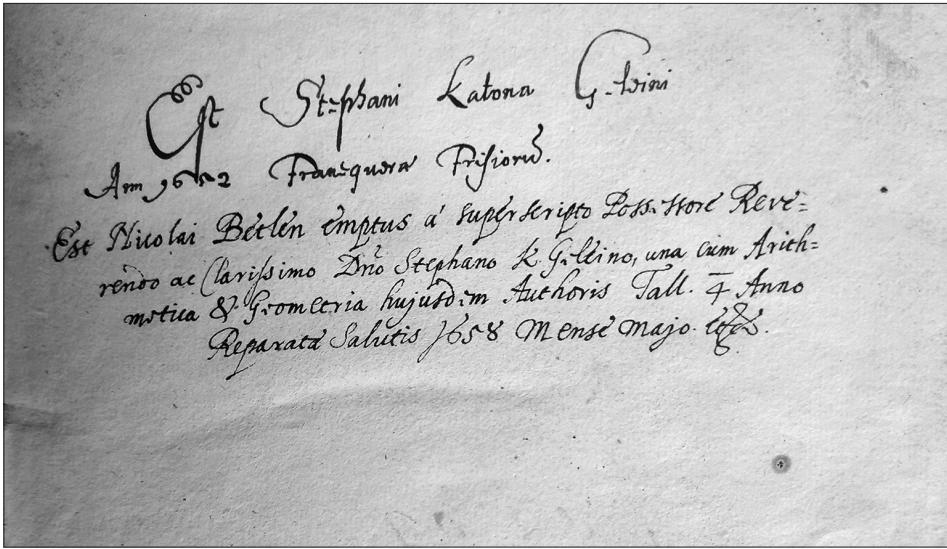 Est Stephani Katona Geleini
Ann 1652 Franequeræ Frisiorũ.
Est Nicolai Betlen emptus á superscripto Possessore Reve=
rendo ac Clarissimo Dño Stephano K. Gelleino, una cum Arith=
metica & Geometria hujusdem Authoris Tall. 4 Anno
Reparatæ Salutis 1658 Mense Majo.